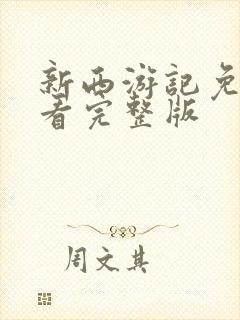 新西游记免
看完整版
周文其